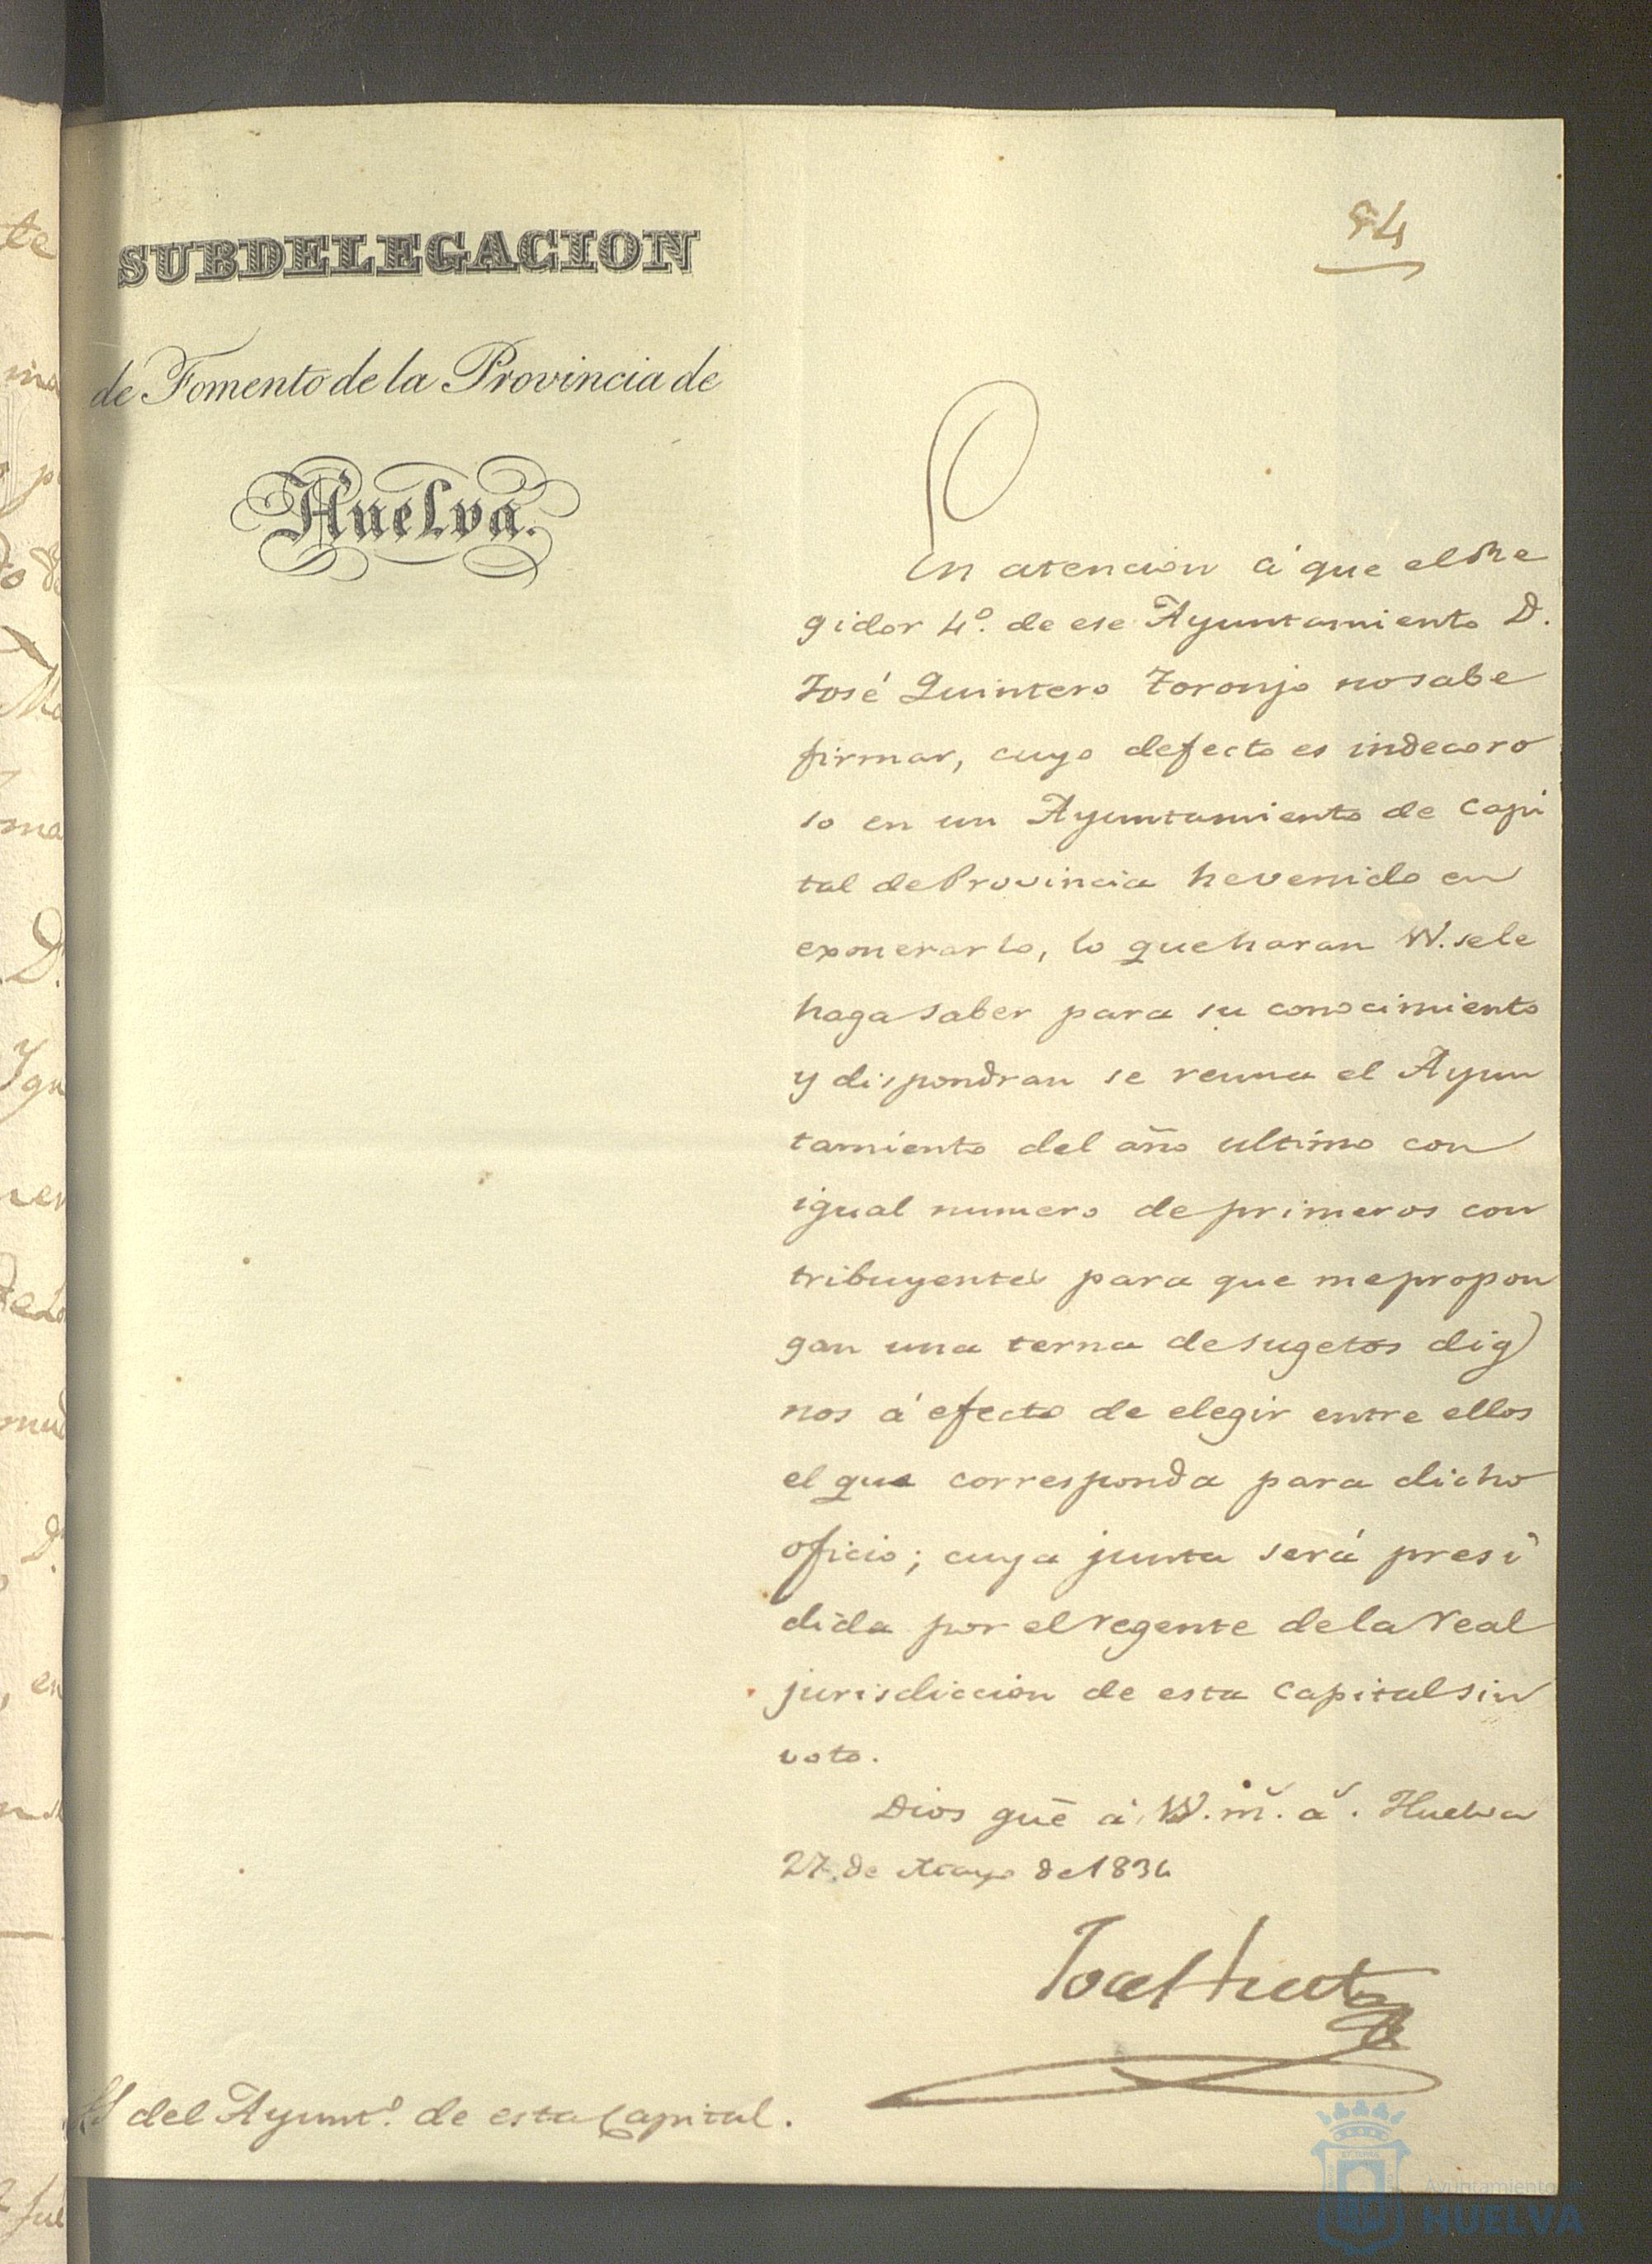 SUBDELEGACION
de Fomento de la Provincia de
Huelva.
94
En atencion á que el Re
gidor 4º. de ese Ayuntamiento D.
José Quintero Toronjo no sabe
firmar, cuyo defecto es indecoro
so en un Ayuntamiento de Capi
tal de Provincia he venido en
exonerarlo, lo que haran VV. se le
haga saber para su conocimiento
y dispondran se reuna el Ayun
tamiento del año ultimo con
igual numero de primeros con
tribuyentes para que me propon
gan una terna de sugetos dig
nos á efecto de elegir entre ellos
el que corresponda para dicho
oficio; cuya junta será presi
dida por el regente de la real
jurisdiccion de esta Capital sin
voto.
Dios gue á VV. ms. as. Huelva
27 de Mayo de 1834
del Ayunto. de esta Capital.
Ayuntamiento de
HUELVA